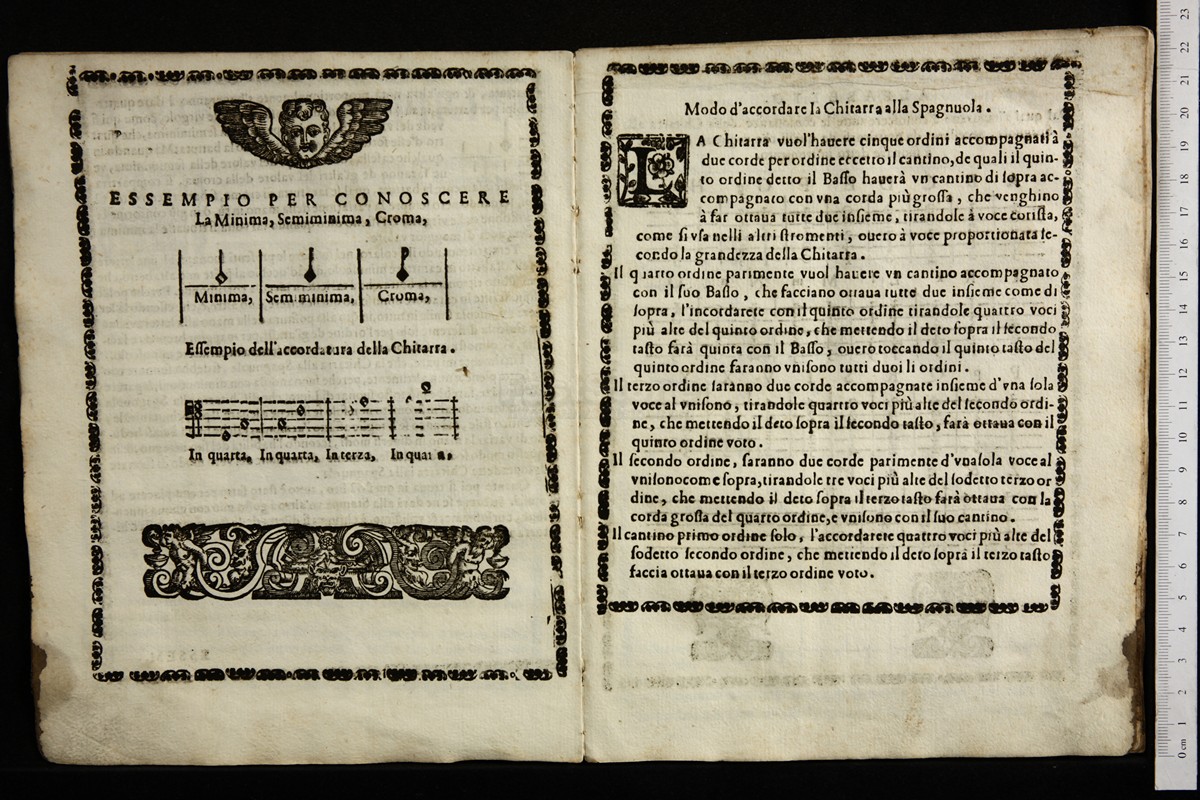 ESSEMPIO PER CONOSCERE
La Minima, Semiminima, Croma,
Minima, Semiminima, Croma,
Essempio dell'accordatura della Chitarra.
In quarta, In quarta, In terza, In quar a,
Modo d'accordare la Chitarra alla Spagnuola.
LA Chitarra vuol'hauere cinque ordini accompagnati à
due corde per ordine eccetto il cantino, de quali il quin-
to ordine detto il Baſſo hauerà vn cantino di ſopra ac-
compagnato con vna corda più groſſa, che venghino
à far ottaua tutte due inſieme, tirandole à voce coriſta,
come ſi vſa nelli altri ſtromenti, ouero à voce proportionata ſe-
condo la grandezza della Chitarra.
Il quarto ordine parimente vuol hauere vn cantino accompagnato
con il ſuo Baſſo, che facciano ottaua tutte due inſieme come di
ſopra, l'incordarete con il quinto ordine tirandole quattro voci
più alte del quinto ordine, che mettendo il deto ſopra il ſecondo
taſto farà quinta con il Baſſo, ouero toccando il quinto taſto del
quinto ordine faranno vniſono tutti duoi li ordini.
Il terzo ordine ſaranno due corde accompagnate inſieme d'vna ſola
voce al vniſono, tirandole quattro voci più alte del ſecondo ordi-
ne, che mettendo il deto ſopra il ſecondo taſto, farà ottaua con il
quinto ordine voto.
Il ſecondo ordine, ſaranno due corde parimente d'vna ſola voce al
vniſono come ſopra, tirandole tre voci più alte del ſodetto terzo or
dine, che mettendo il deto ſopra il terzo taſto farà ottaua con la
corda groſſa del quarto ordine, e vniſono con il ſuo cantino.
Il cantino primo ordine ſolo, l'accordarete quattro voci più alte del
ſodetto ſecondo ordine, che mettendo il deto ſopra il terzo taſto
faccia ottaua con il terzo ordine voto.
0 cm 1 2 3 4 5 6 7 8 9 10 11 12 13 14 15 16 17 18 19 20 21 22 23